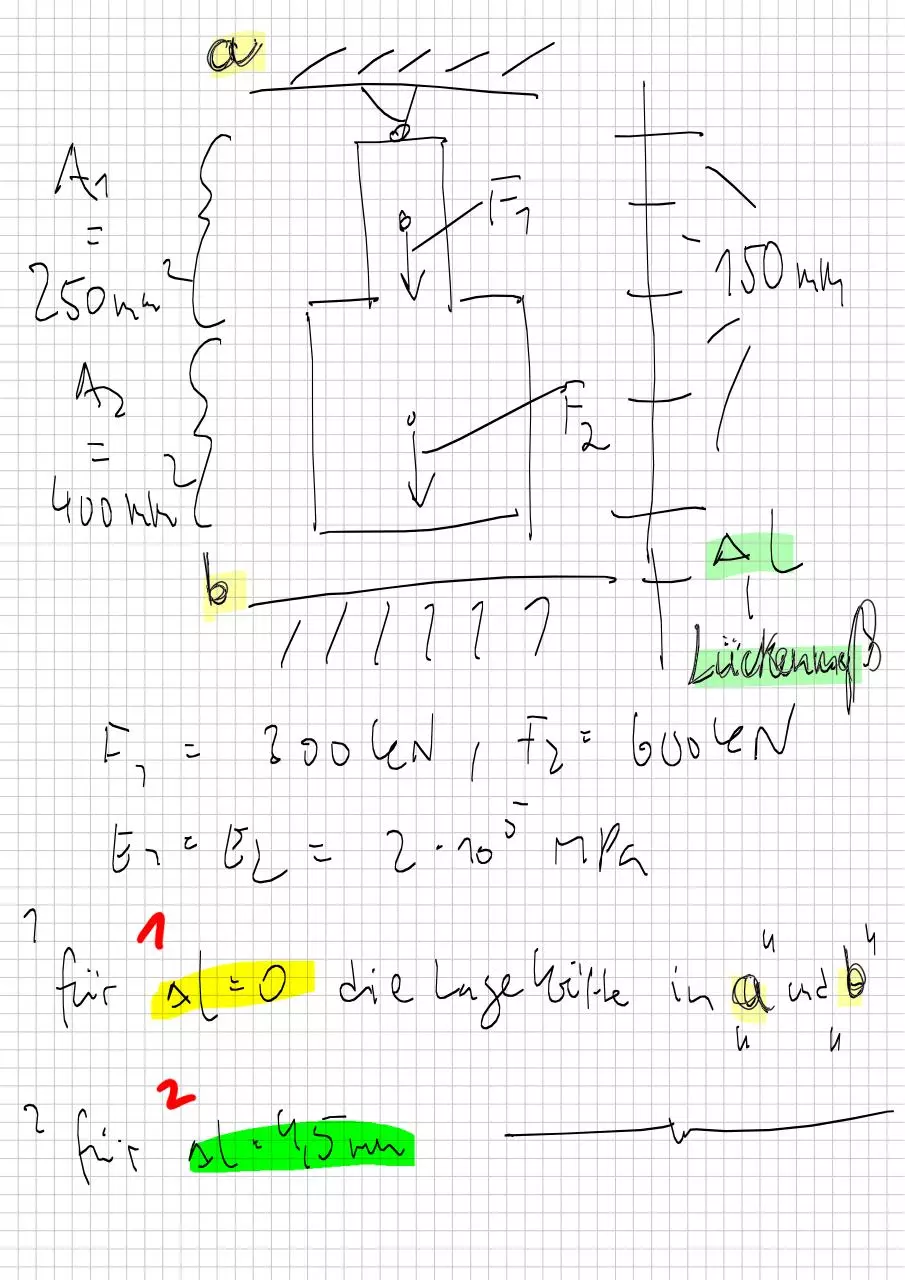 a
A₁
=
250mm²
F₁
150mm
A₂
=
400mm²
F₂
b
Δl
Lückenmaß
F₁ = 300kN, F₂ = 600kN
E₁ = E₂ = 2·10⁵ MPa
1
1
für Δl=0 die Lagekräfte in "a" und "b"
2
2
für Δl=4,5mm